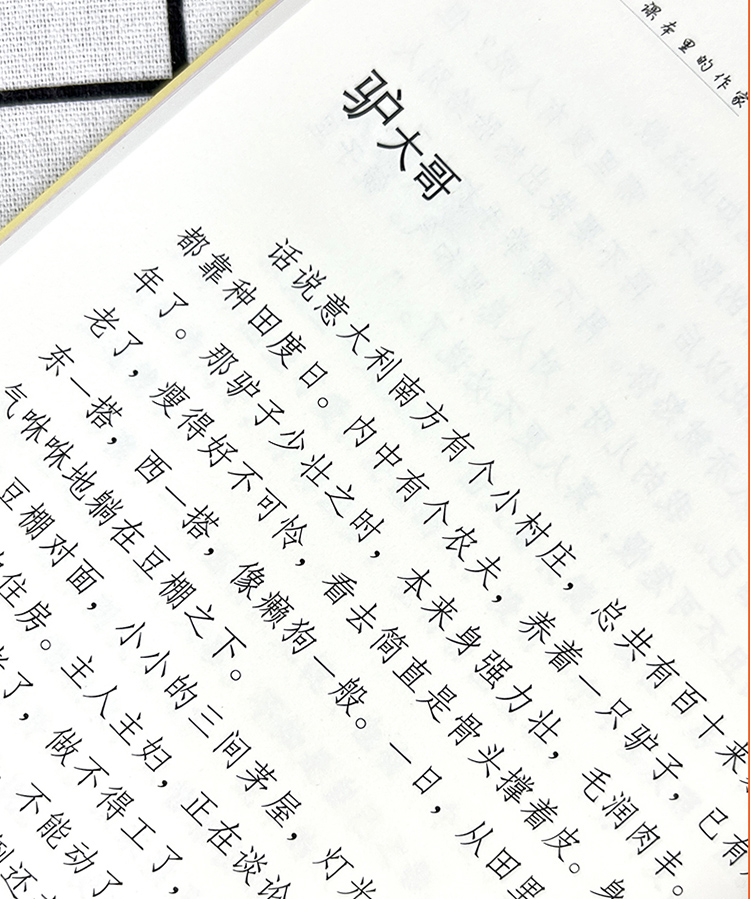 课本里的作家
驴大哥
话说意大利南方有个小村庄，总共有百十来
都靠种田度日。内中有个农夫，养着一只驴子，已有
年了。那驴子少壮之时，本来身强力壮，毛润肉丰。
老了，瘦得好不可怜，看去简直是骨头撑着皮。身
东一搭，西一搭，像癞狗一般。一日，从田里
气咻咻地躺在豆棚之下。
豆棚对面，小小的三间茅屋，灯光
住房。主人主妇，正在谈论
了，做不得工了，
，不能动了
还